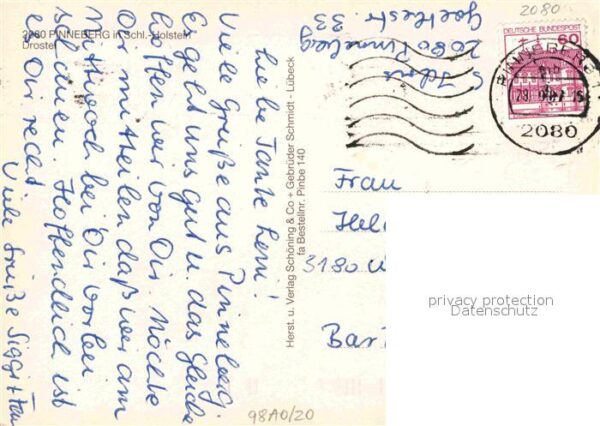 2080 PINNEBERG in Schl.-Holstein
Drostei
Liebe Tante Leni!
Viele Grüße aus Pinneberg.
Es geht uns gut u. das Gleiche
hoffen wir von Dir. Möchte
Dir mitteilen daß wir am
Mittwoch bei Dir vorbei
schauen. Hoffentlich ist
es Dir recht
Viele Grüße Siggi + Fam
Herst. u. Verlag Schöning & Co + Gebrüder Schmidt - Lübeck
fa Bestellnr. Pinbe 140
2080 Pinneberg
Goethestr. 33
2080
DEUTSCHE BUNDESPOST
60
PINNEBERG 1
2080
Frau
Hel
3180 W
Bar
privacy protection
Datenschutz
98A0/20